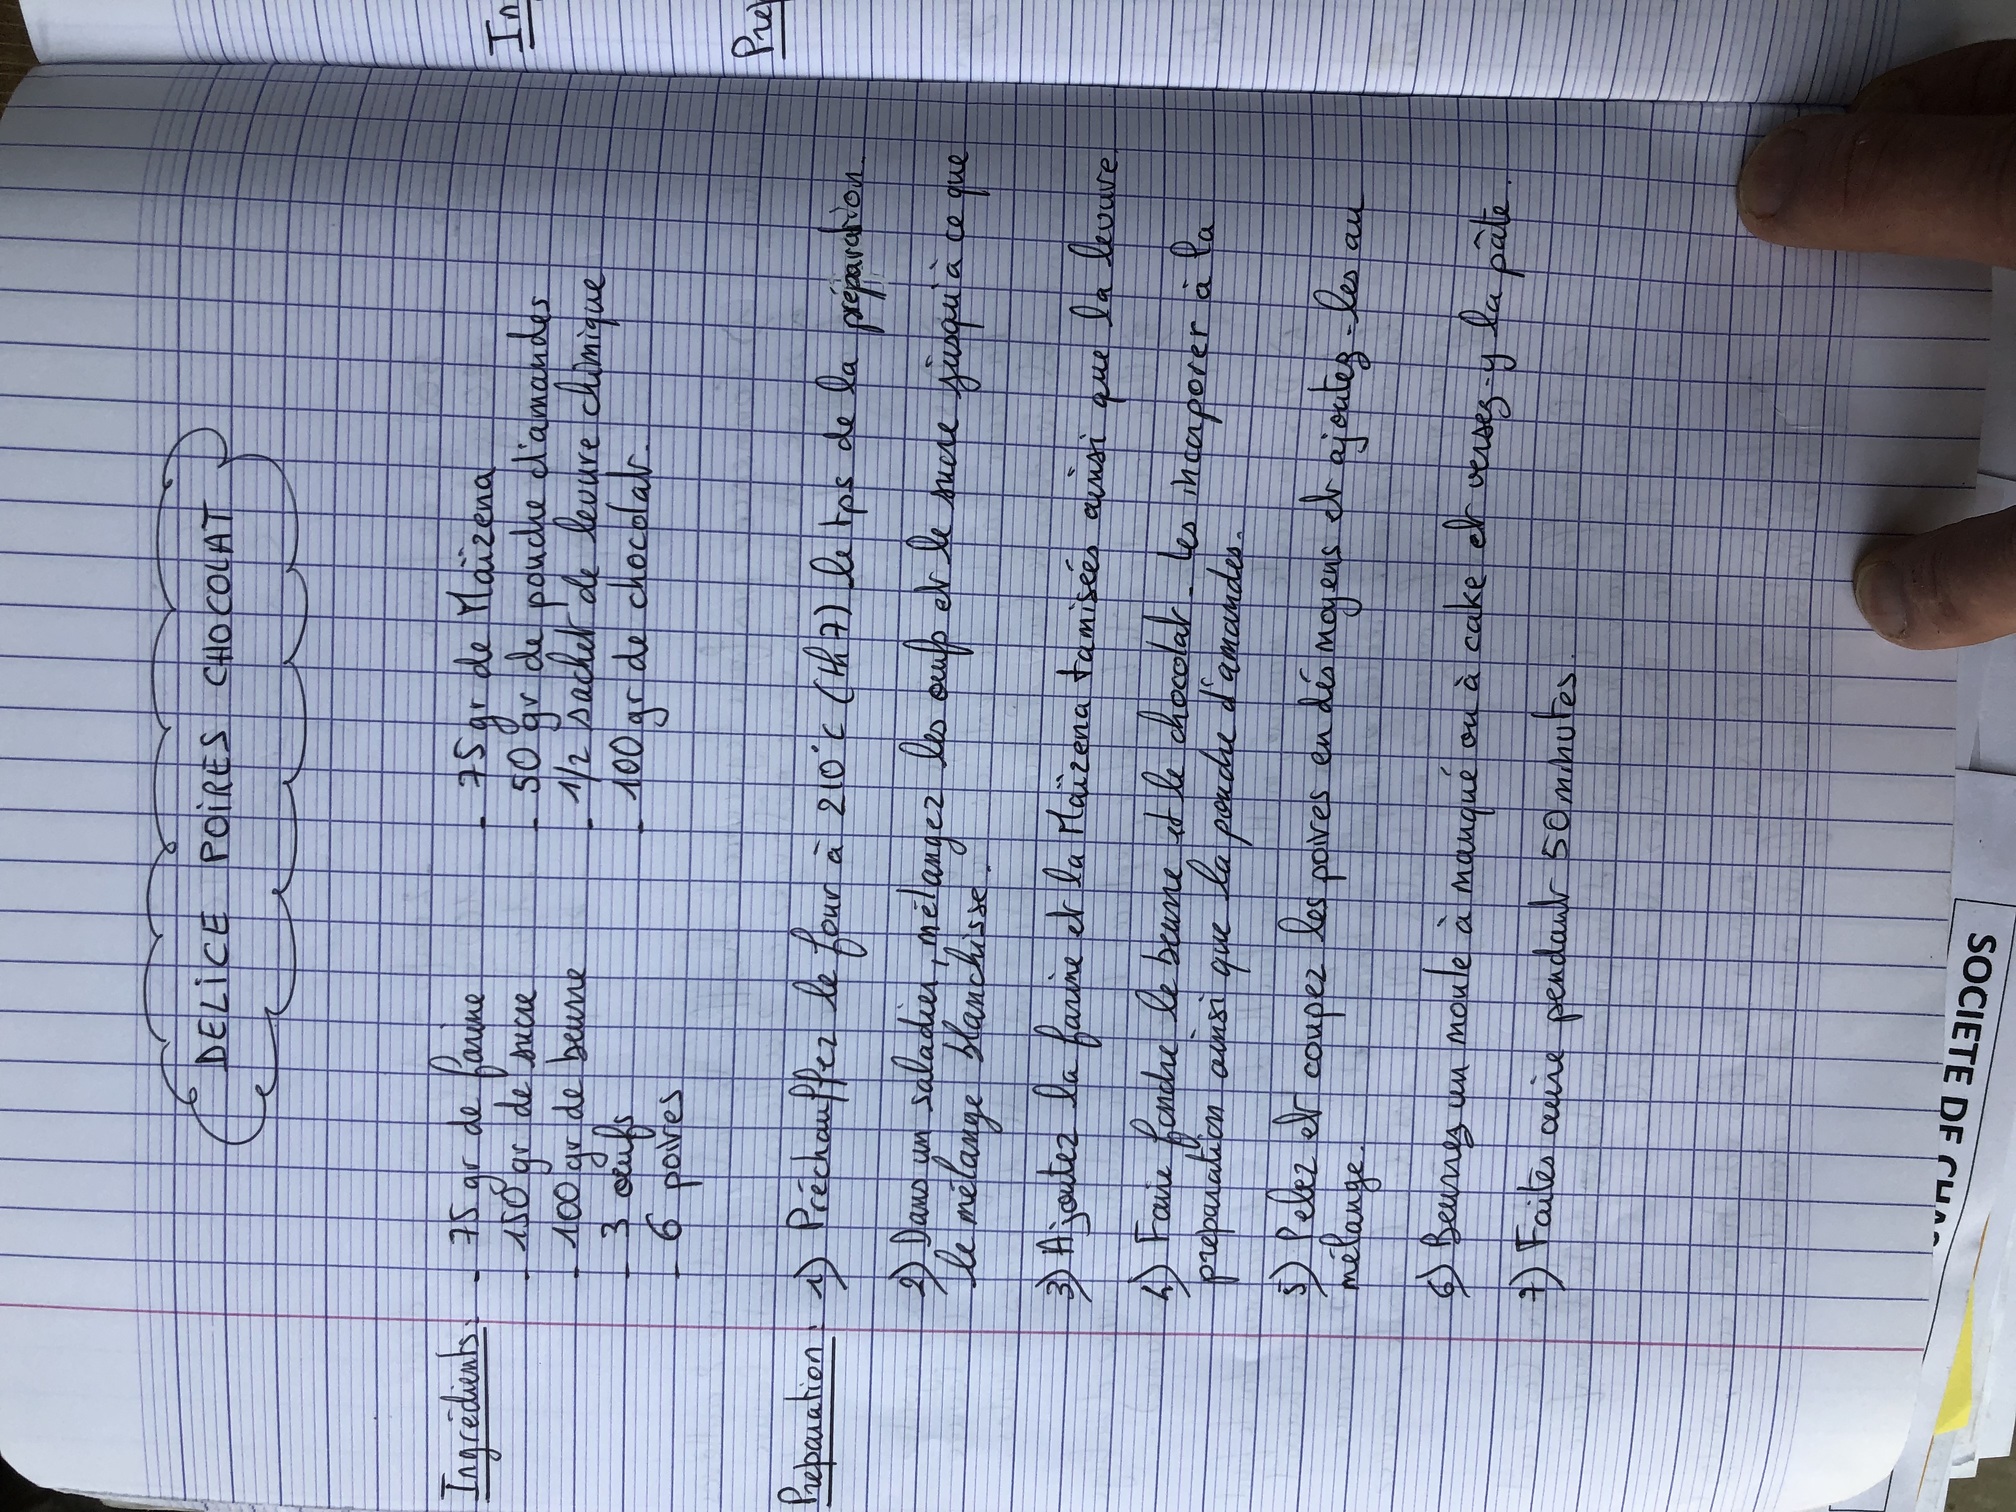 DELICE POIRES CHOCOLAT
Ingrédients:
- 75 gr de farine
- 150 gr de sucre
- 100 gr de beurre
- 3 œufs
- 6 poires
- 75 gr de Maïzena
- 50 gr de poudre d'amandes
- 1/2 sachet de levure chimique
- 100 gr de chocolat.
Preparation:
1) Préchauffez le four à 210°C (th 7) le tps de la préparation.
2) Dans un saladier, mélangez les oeufs et le sucre jusqu'à ce que
le mélange blanchisse.
3) Ajoutez la farine et la Maïzena tamisées ainsi que la levure.
4) Faire fondre le beurre et le chocolat. les incorporer à la
preparation ainsi que la poudre d'amandes.
5) Pelez et coupez les poires en dés moyens et ajoutez-les au
mélange.
6) Beurrez un moule à manqué ou à cake et versez-y la pâte.
7) Faites cuire pendant 50 minutes.
In
Pré
SOCIETE DE CHAS